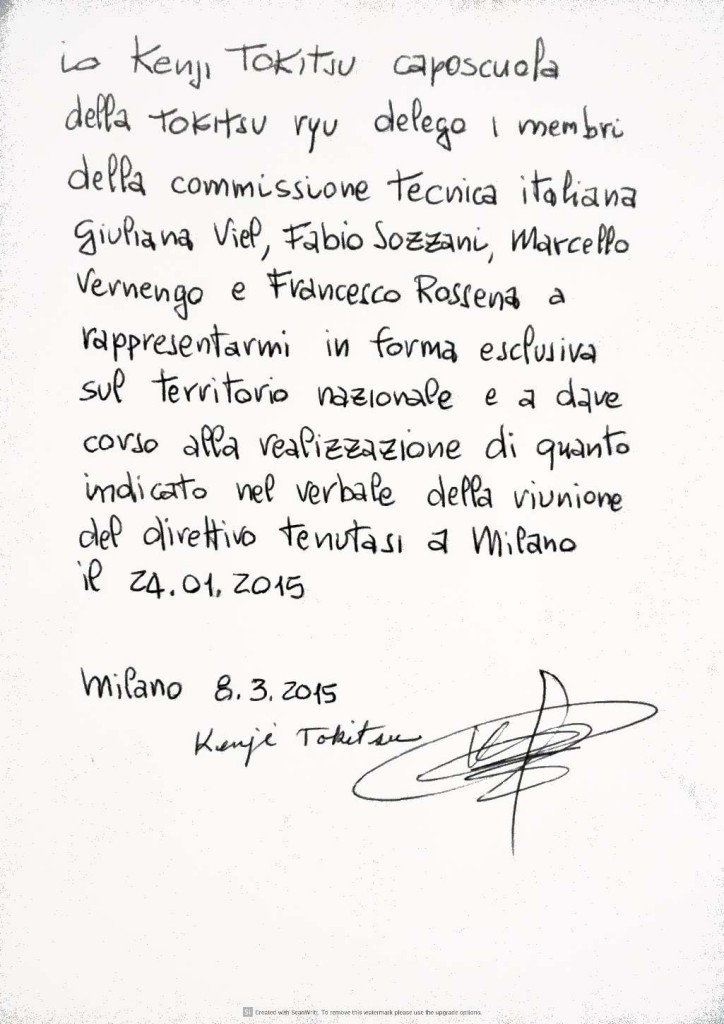 io Kenji TOKITSU caposcuola
della TOKITSU ryu delego i membri
della commissione tecnica italiana
Giuliana Viel, Fabio Sozzani, Marcello
Vernengo e Francesco Rossena a
rappresentarmi in forma esclusiva
sul territorio nazionale e a dare
corso alla realizzazione di quanto
indicato nel verbale della riunione
del direttivo tenutasi a Milano
il 24.01.2015
Milano 8.3.2015
Kenji Tokitsu
Created with ScanWritr. To remove this watermark please use the upgrade options.